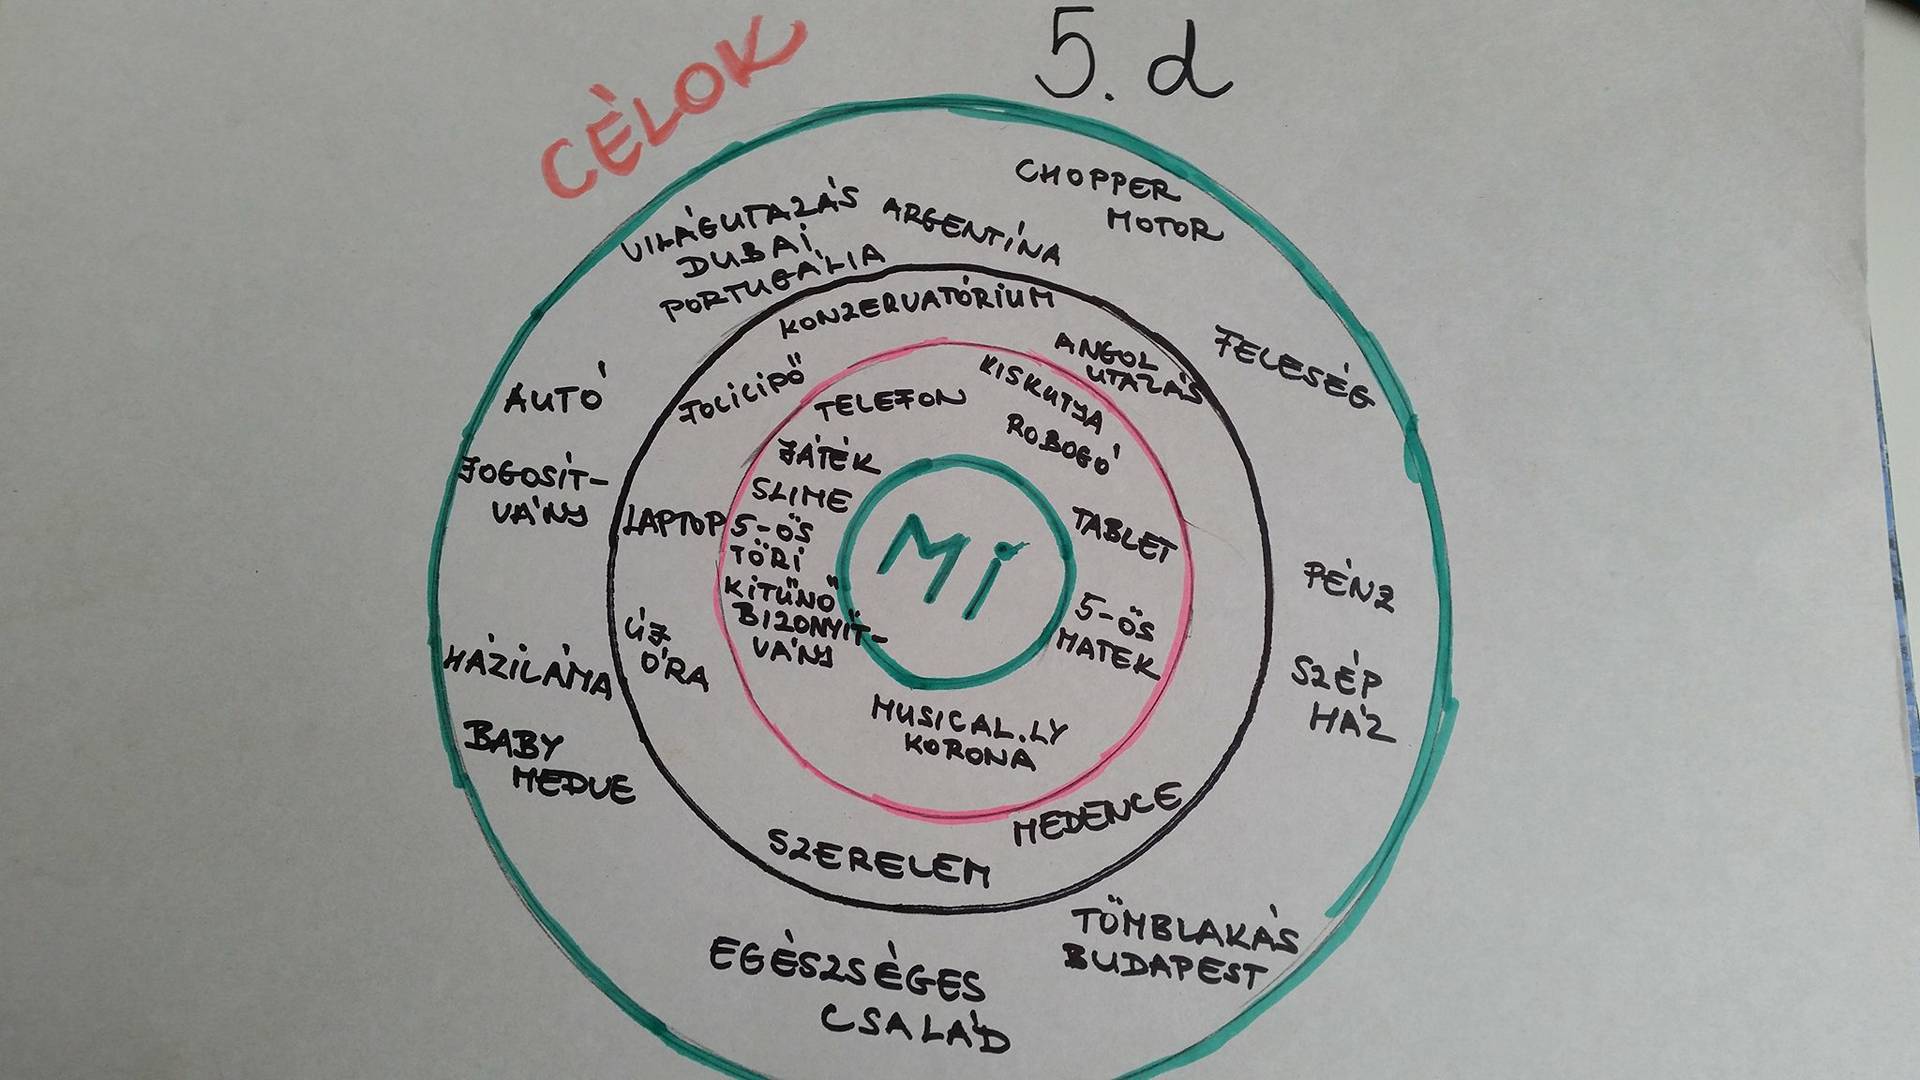 CÈLOK
5. d
CHOPPER
MOTOR
VILÁGUTAZÁS
DUBAI
PORTUGÁLIA
ARGENTÍNA
FELESÉG
AUTÓ
JOGOSÍT-
VÁNY
PÉNZ
SZÉP
HÁZ
HÁZILÁMA
BABY
MEDVE
TÖMBLAKÁS
BUDAPEST
EGÉSZSÉGES
CSALÁD
KONZERVATÓRIUM
ANGOL
UTAZÁS
FOCICIPŐ
LAPTOP
ÚJ
ÓRA
MEDENCE
SZERELEM
TELEFON
KISKUTYA
ROBOGÓ
JÁTÉK
SLIME
5-ÖS
TÖRI
KITŰNŐ
BIZONYÍT-
VÁNY
TABLET
5-ÖS
MATEK
MUSICAL.LY
KORONA
Mi